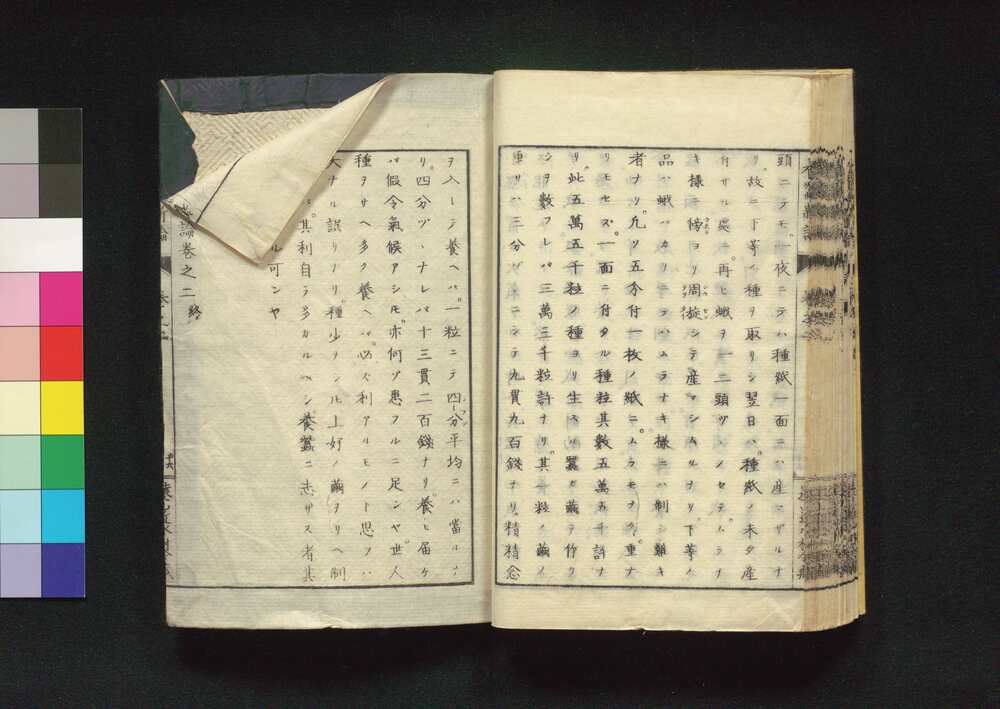 頭ニテモ。一夜ニテハ種紙一面ニハ産ミザルナ
リ。故ニ下等ノ種ヲ取リシ翌日ハ。種紙ノ未タ産
付サル處ニ。再ヒ蛾ヲ一二頭ヅヽノセテ。ムラナ
キ様ニ傍ヨリ周旋シテ産マシムルナリ。下等ノ
品ハ蛾バカリニテハムラナキ様ニハ制シ難キ
者ナリ。凡ソ五分付一枚ノ紙ニ。ムラモナク。重ナ
リモセズ。一面ニ付タル種粒其數五萬五千許ナ
リ。此五萬五千粒ノ種ヨリ生ヘリ蠶ガ繭ヲ作リ
シヲ數フレバ三萬三千粒許ナリ。其一粒ノ繭ノ
重リハ三分ヅヽニシテ九貫九百錢ナリ。精精念
ヲ入レテ養ヘバ。一粒ニテ四分平均ニハ當ルナ
リ。四分ヅヽナレバ十三貫二百錢ナリ。養ヒ届ケ
バ假令氣候アシキモ。亦何ゾ患フルニ足ンヤ。世人
種ヲサヘ多ク養ヘバ。必ズ利アルモノト思フハ
大ナル誤リナリ。種少ナシ𪜈上好ノ繭ヲサヘ制
其利自ラ多カルベシ。養蠶ニ志ザス者其
ル可ンヤ
論卷之二終